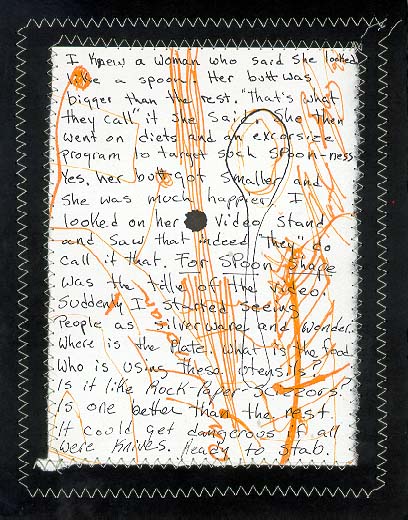 I knew a woman who said she looked
like a spoon. Her butt was
bigger than the rest. "That's what
they call" it she said. She then
went on diets and an excorsize
program to target such spoon-ness
Yes, her butt got smaller and
she was much happier. I
looked on her video stand
and saw that indeed "they" do
call it that. For Spoon Shape
was the title of the video.
Suddenly I started seeing
People as silverware and wonder.
Where is the Plate. What is the food
Who is using these utensils?
Is it like Rock-Paper-Scizzors?
Is one better than the rest.
It could get dangerous if all
were knives. Ready to stab.